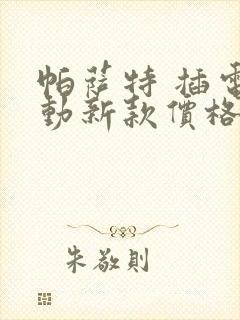 帕薩特 插電
動新款價格
朱敬則